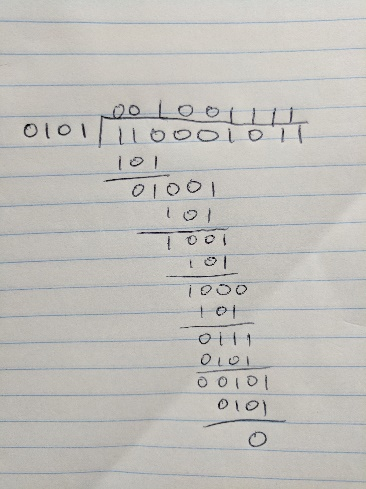 001001111
0101 110001011
101
01001
101
1001
101
1000
101
0111
0101
00101
0101
0